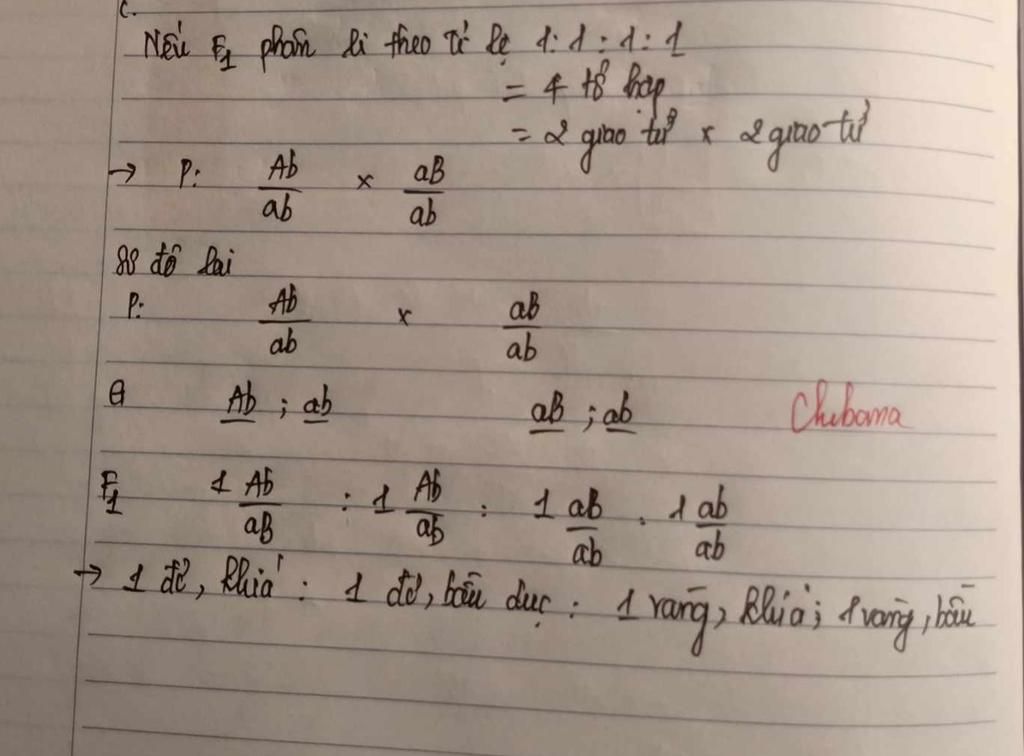 c.
Nếu F1 phân li theo tỉ lệ 1 : 1 : 1 : 1
= 4 tổ hợp
= 2 giao tử x 2 giao tử
→ P: Ab/ab x aB/ab
Sơ đồ lai
P: Ab/ab x aB/ab
G Ab ; ab aB ; ab Chibana
F1 1 Ab/aB : 1 Ab/ab : 1 aB/ab : 1 ab/ab
→ 1 đỏ, khía : 1 đỏ, bầu dục : 1 vàng, khía ; 1 vàng, bầu